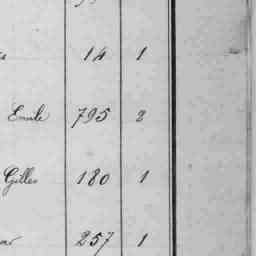 14 1
Emile 795 2
Gilles 180 1
257 1